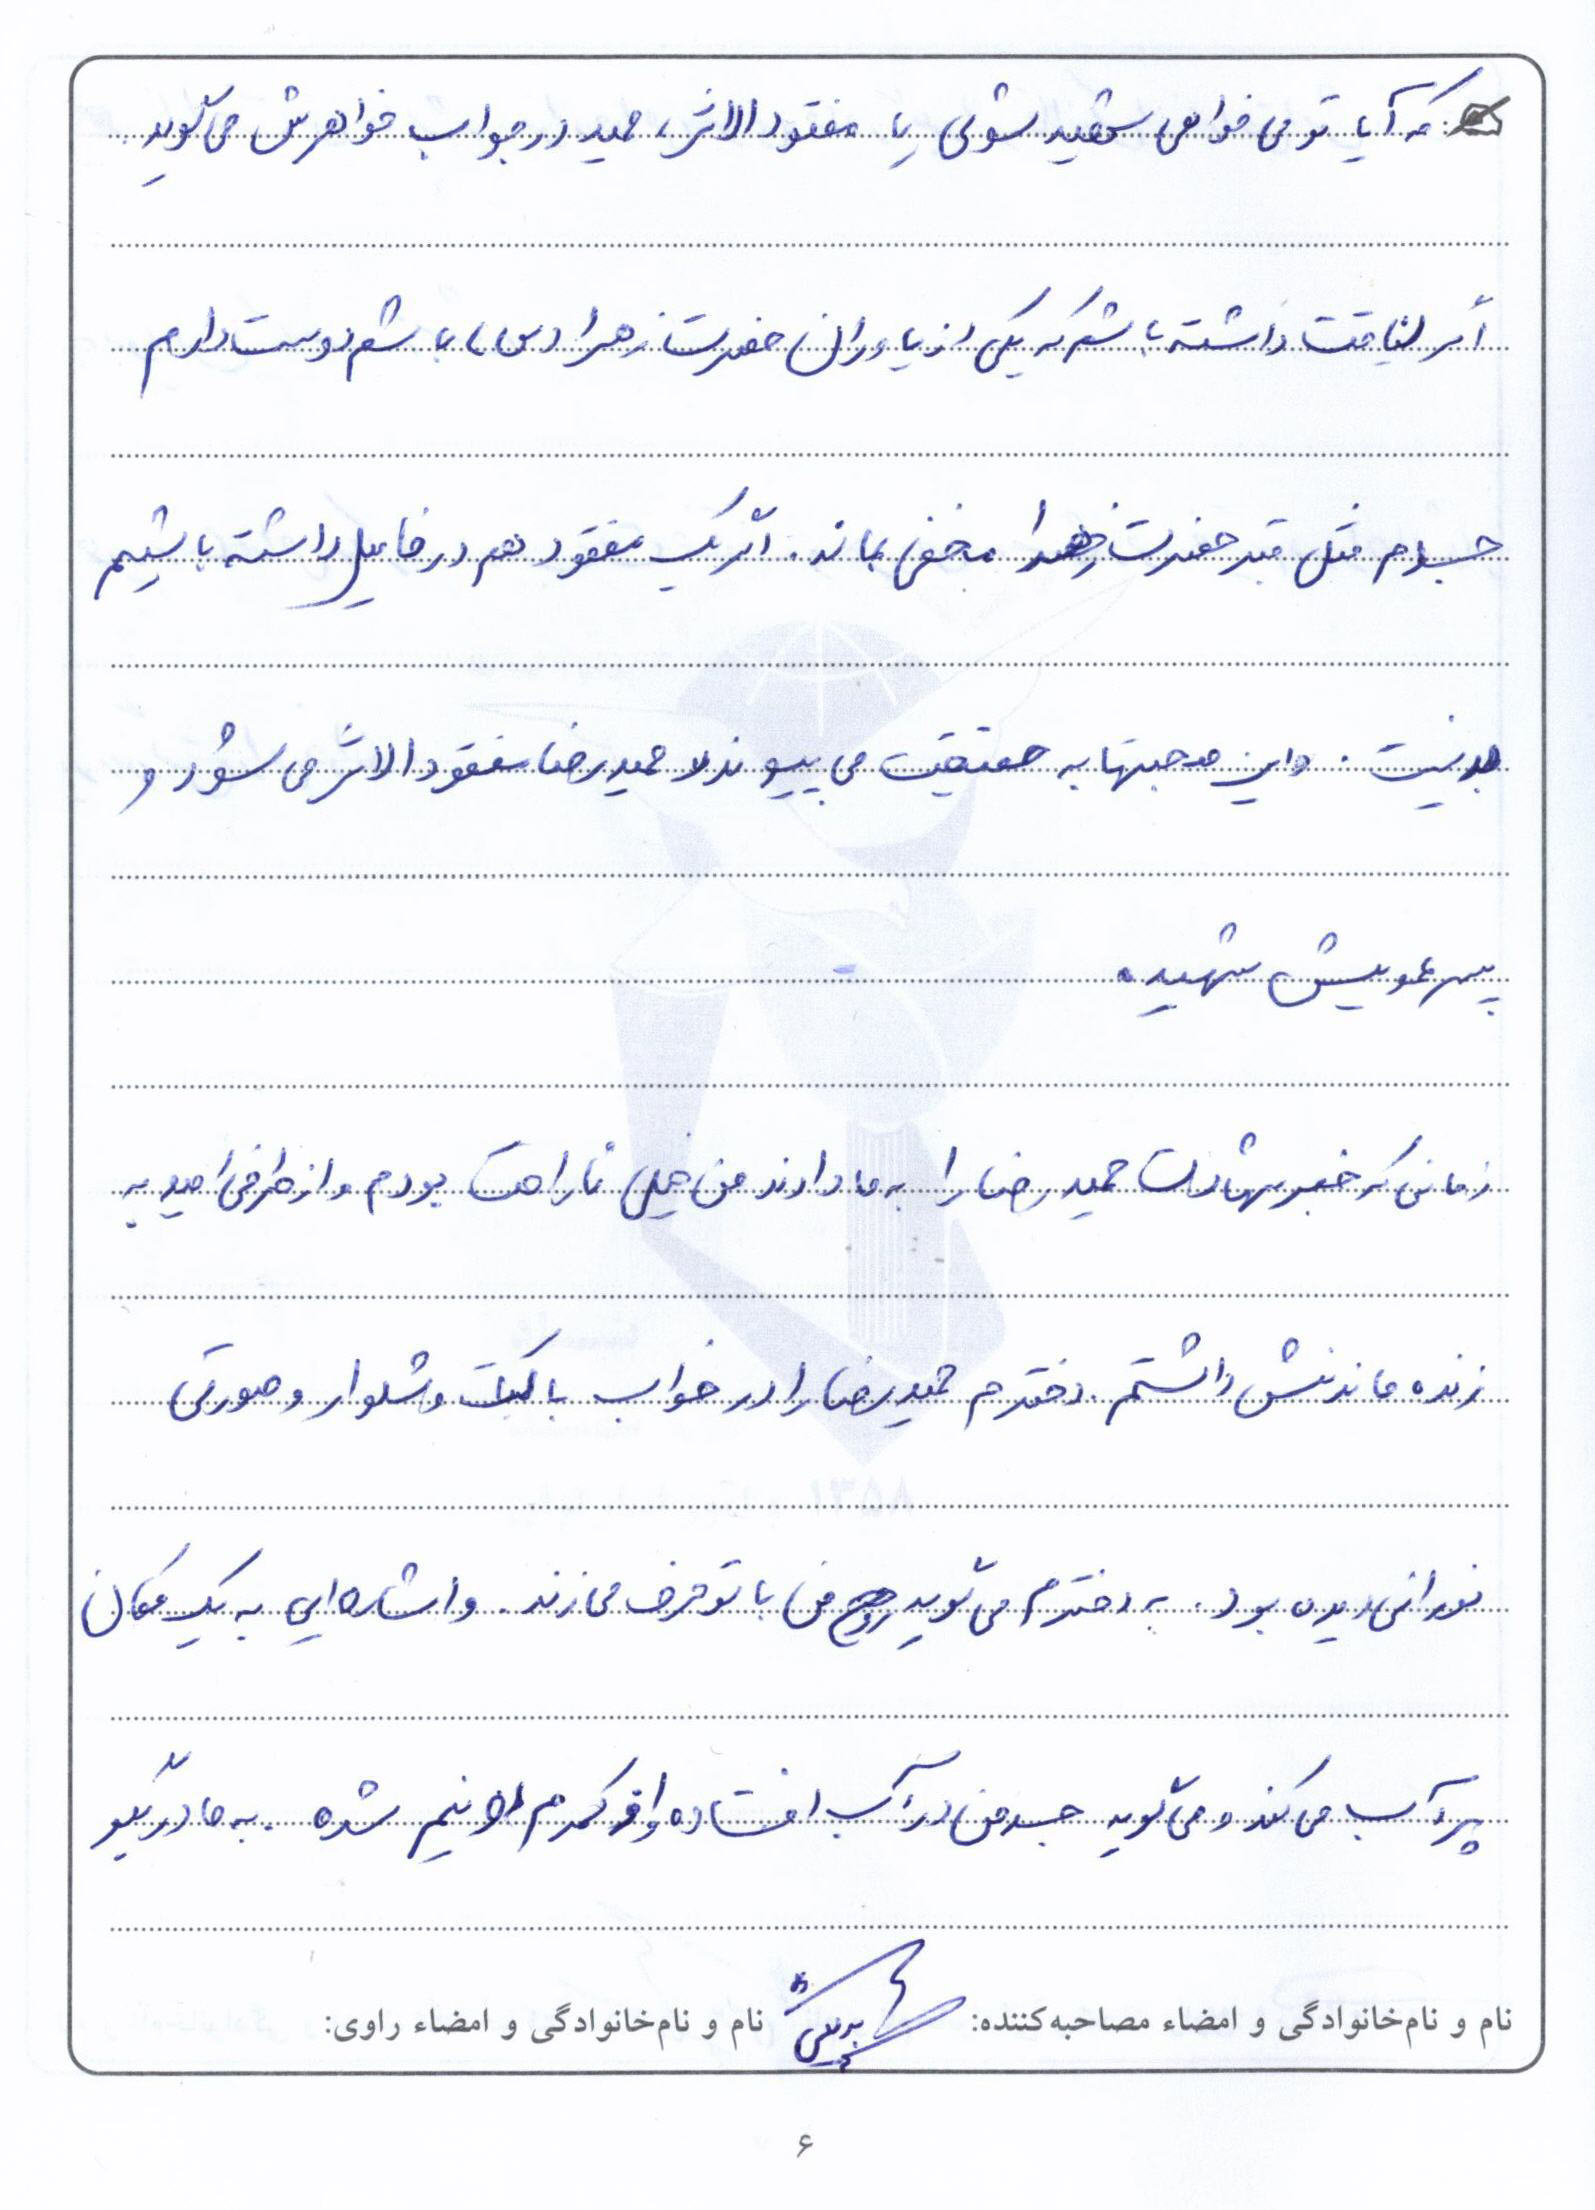 که آیا تو می خواهی شهید شوی یا مفقود الاثر، حمید در جواب خواهرش می گوید
اگر لیاقت داشته باشم که یکی از یاوران حضرت زهرا (س) باشم دوست دارم
جسدم مثل قبر حضرت زهرا مخفی بماند. اگر یک مفقود هم در فامیل داشته باشیم
بد نیست. و این صحبتها به حقیقت می پیوندد حمیدرضا مفقود الاثر می شود و
پسر عمویش شهید.
زمانی که خبر شهادت حمیدرضا را به ما دادند من خیلی ناراحت بودم و از طرفی امید به
زنده ماندنش داشتم. دخترم حمیدرضا را در خواب با کت و شلوار و صورتی
نورانی دیده بود. به دخترم می گوید روح من با تو حرف می زند. و اشاره ایی به یک مکان
پر آب می کند و می گوید جسد من در آب افتاده و از کمرم نیم شده. به مادر بگو
نام و نام‌خانوادگی و امضاء مصاحبه‌کننده: نام و نام‌خانوادگی و امضاء راوی:
۶